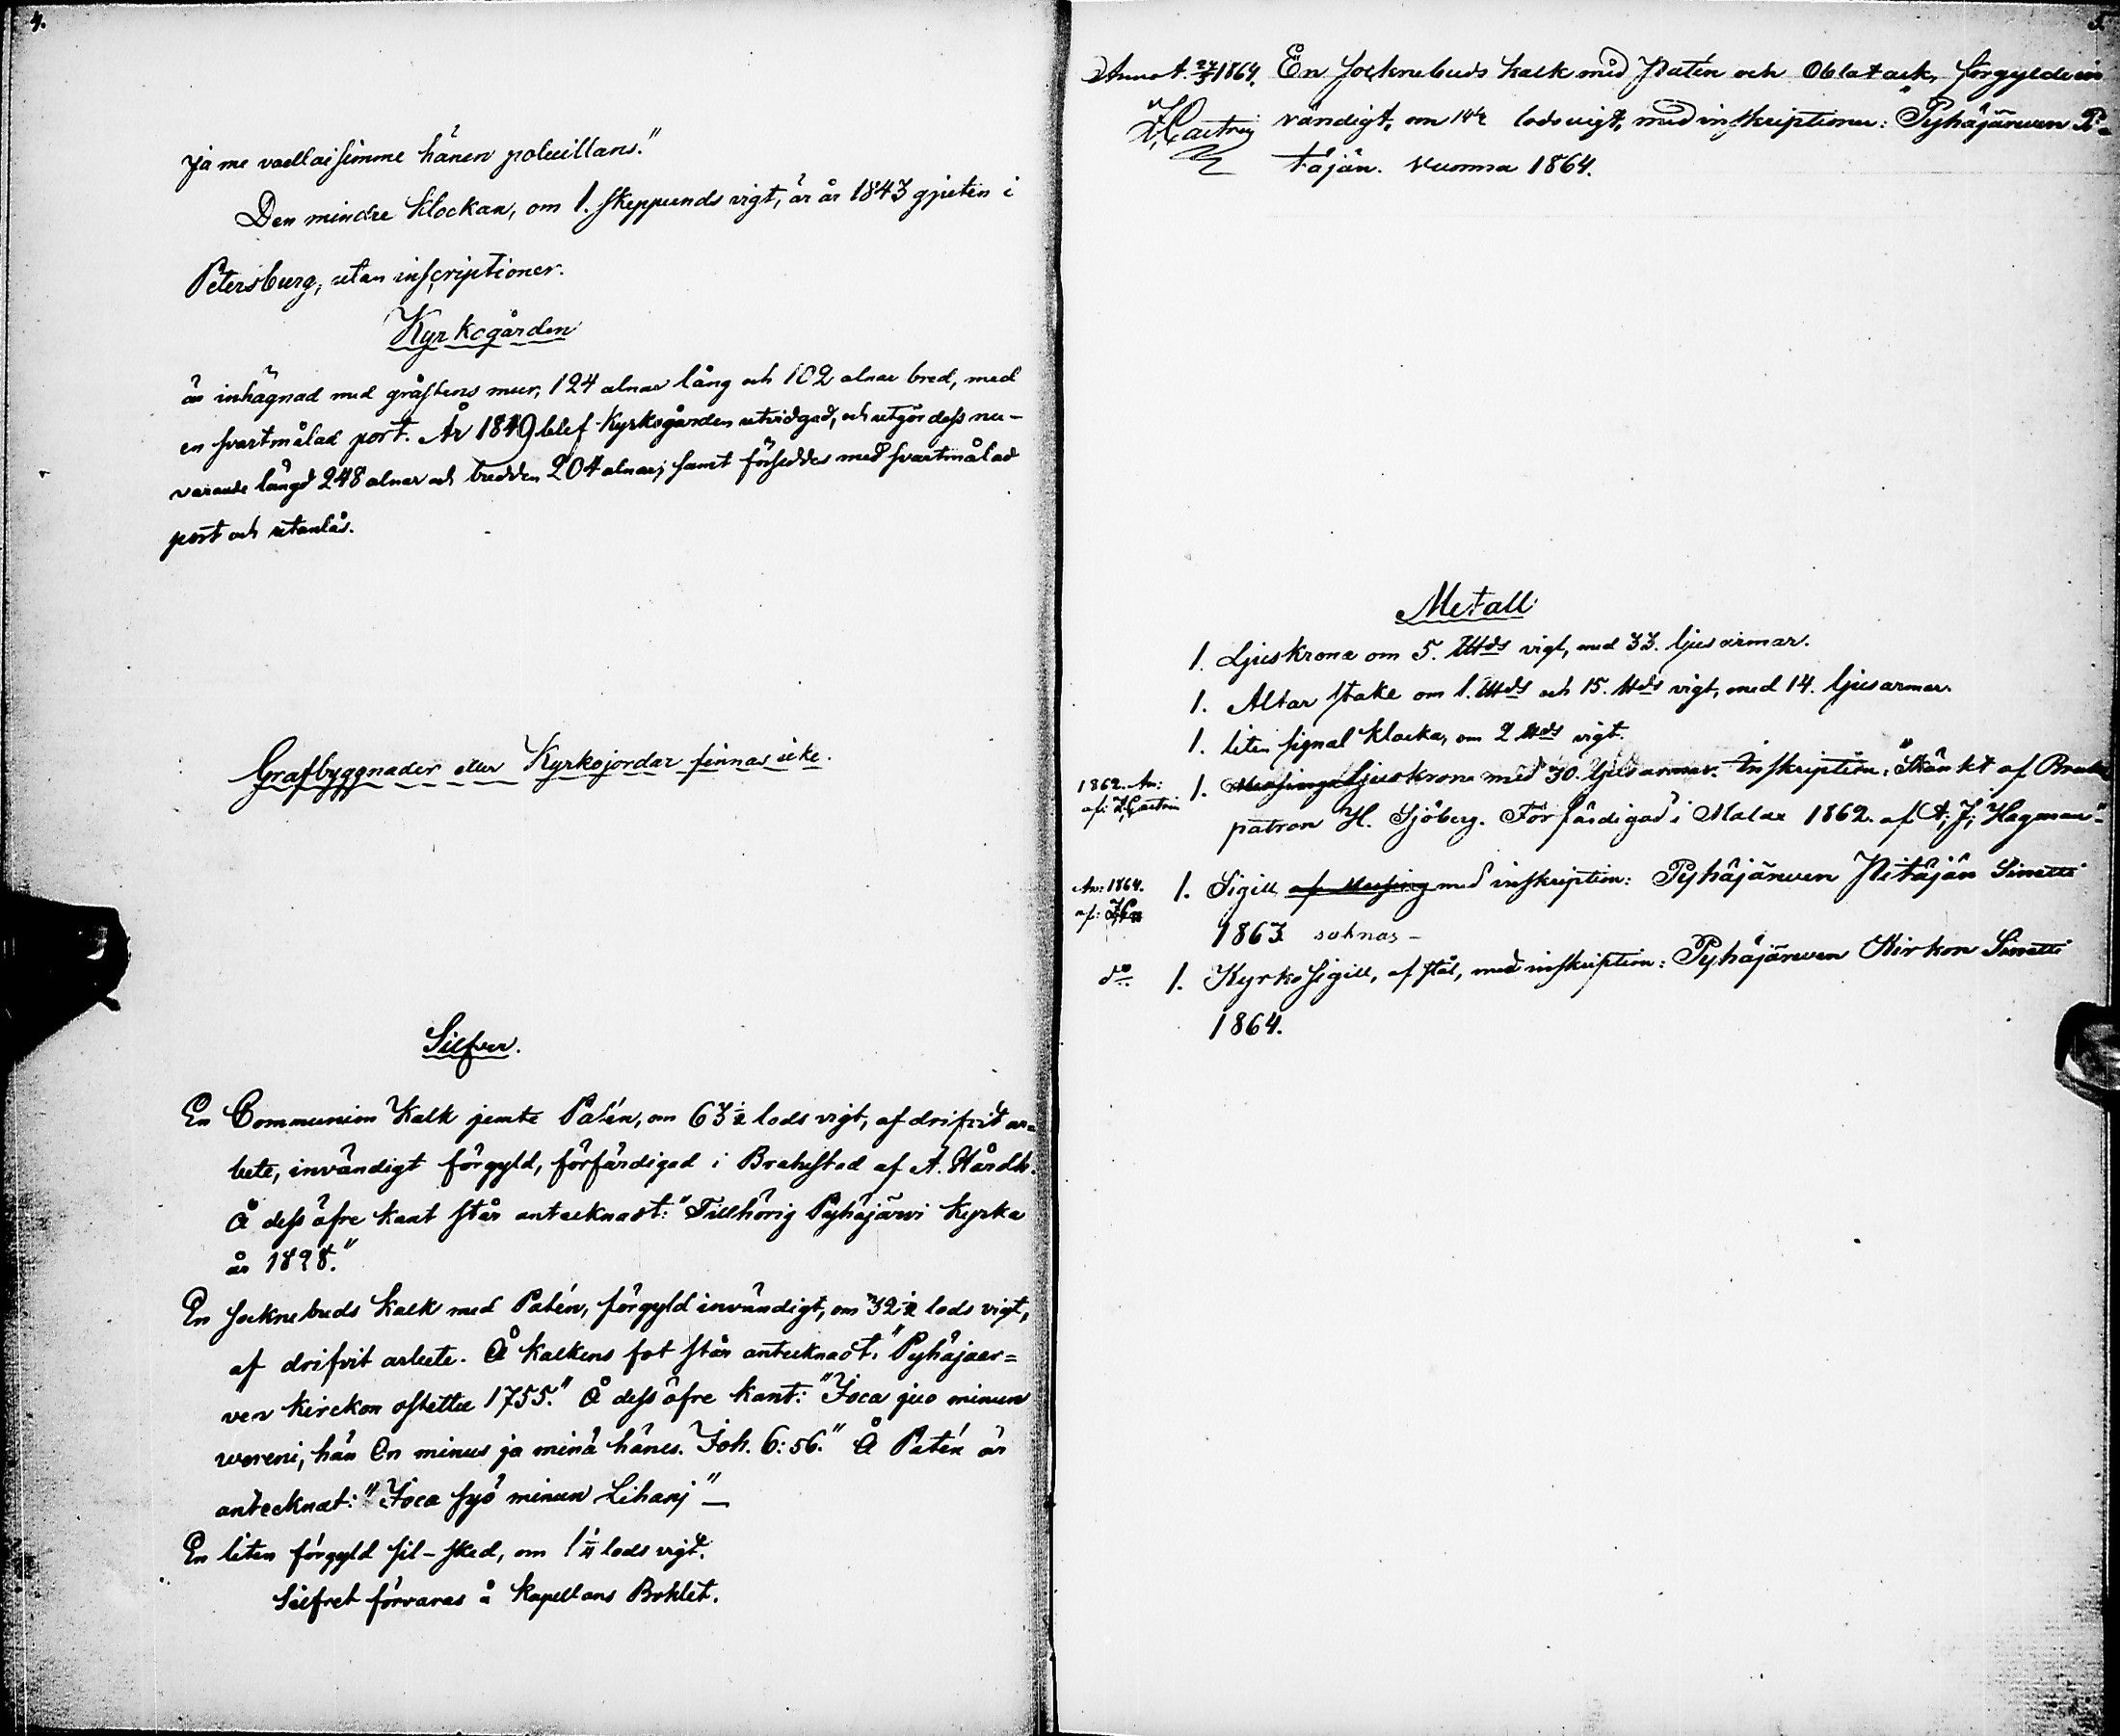 4.
ja me vaellaisimme hänen polluillans."
Den mindre Klockan, om 1. skeppunds vigt, är år 1843 gjuten i
Petersburg, utan inscriptioner.
Kyrkogården
är inhägnad med gråstens mur, 124 alnar lång och 102 alnar bred, med
en svartmålad port. År 1849 blef Kyrkogården utvidgad, och utgör dess nu-
varande längd 248 alnar och bredden 204 alnar; samt förseddes med svartmålad
port och utanlås.
Grafbyggnader eller Kyrkojordar finnas icke.
Silfver.
En Communion Kalk jemte Patén, om 63 1/2 lods vigt, af drifvit ar=
bete, invändigt förgyld, förfärdigad i Brahestad af A. Hårdh.
Å dess öfre kant står antecknadt: "Tillhörig Pyhäjärvi Kyrka
år 1828."
En socknebuds Kalk med Patén, förgyld invändigt, om 32 1/2 lods vigt,
af drifvit arbete. Å kalkens fot står antecknadt: "Pyhäjaer=
ven Kirckon ostettu 1755." Å dess öfre kant: "Joca juo minun
wereni, hän On minus ja minä hänes. Joh. 6:56." Å Patén är
antecknat: "Joca syö minun Lihanj" —
En liten förgyld sil-sked, om 1 1/4 lods vigt.
Silfret förvaras å Kapellans Bohlet.
5.
Annot. 24/5 1864. En socknebuds kalk med Patén och Oblatask, förgylde in
Z. Castrén vändigt, om 14 1/2 lods vigt, med inskriptionen: "Pyhäjärwen Pi=
täjän. Vuonna 1864.
Metall
1. Ljuskrona om 5. L℔ds vigt, med 33. ljusarmar.
1. Altar stake om 1. L℔ds och 15. ℔ds vigt, med 14. ljusarmar.
1. liten signal klocka, om 2 ℔ds vigt.
1862. An: 1. Messings Ljuskrona med 30. ljusarmar. Inskription: "Skänkt af Bruks
af: Z. Castrén patron H. Sjöberg. Förfärdigad i Malax 1862. af A. J. Hagman"-
An: 1864. 1. Sigill af Messing med inskription: Pyhäjärwen Pitäjän Sinetti
af: 1863 saknas -
do 1. Kyrko Sigill, af stål, med inskription: Pyhäjärwen Kirkon Sinetti
1864.